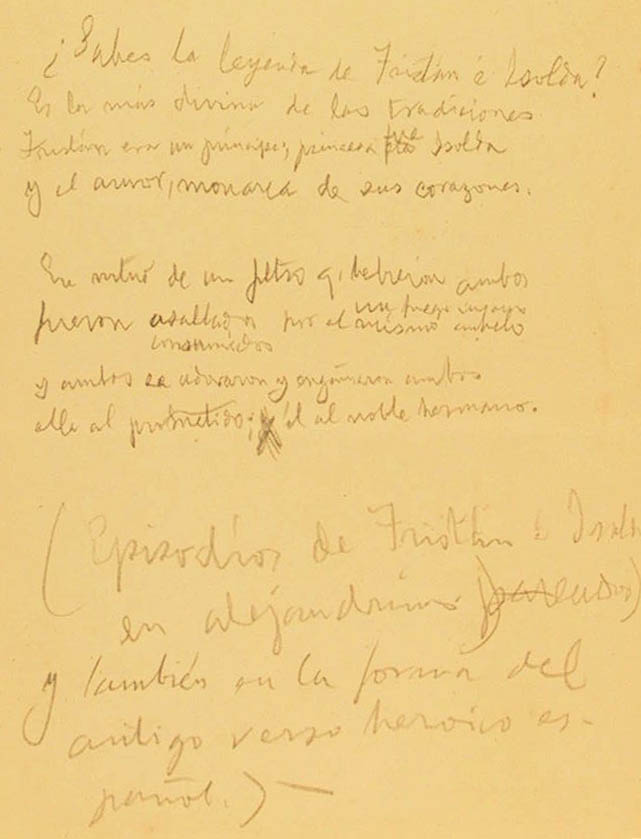 ¿Sabes la leyenda de Tristán é Isolda?
Es la más divina de las tradiciones
Tristán era un príncipe, princesa fue Isolda
y el amor, monarca de sus corazones.
En virtud de un filtro q. bebieron ambos
un fuego insano
fueron asaltados por el mismo anhelo
consumidos
y ambos se adoraron y engañaron ambos
ella al prometido; él al noble hermano.
(Episodios de Tristán é Isolda
en alejandrinos pareados)
y también en la forma del
antigo verso heroico es-
pañol.) —